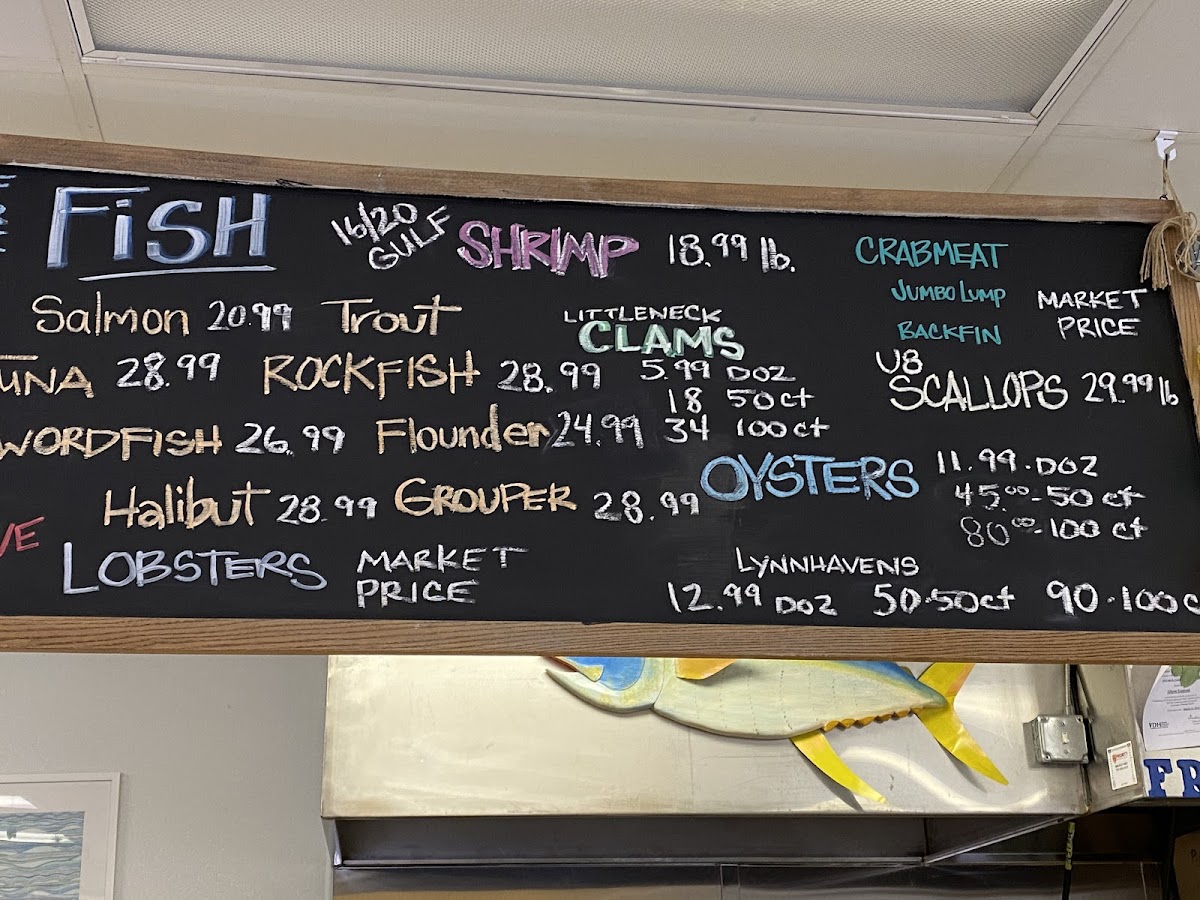 FiSH
16/20 GULF SHRIMP 18.99 lb.
CRABMEAT
JUMBO LUMP
BACKFIN
MARKET PRICE
Salmon 20.99 Trout
UNA 28.99 ROCKFISH 28.99
WORDFISH 26.99 Flounder 24.99
Halibut 28.99 GROUPER 28.99
VE
LOBSTERS MARKET PRICE
LITTLENECK
CLAMS
5.99 DOZ
18 50ct
34 100ct
U8
SCALLOPS 29.99 lb
OYSTERS 11.99.DOZ
45.00-50 ct
80.00-100 ct
LYNNHAVENS
12.99 DOZ 50.50ct 90.100c
VDH
FR